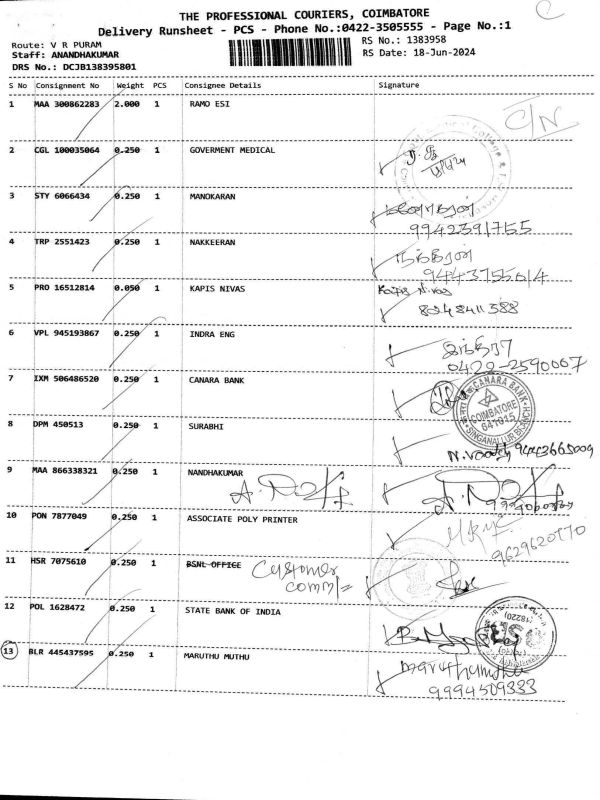 THE PROFESSIONAL COURIERS, COIMBATORE
Delivery Runsheet - PCS - Phone No.:0422-3505555 - Page No.:1
Route: V R PURAM
RS No.: 1383958
Staff: ANANDHAKUMAR
RS Date: 18-Jun-2024
DRS No.: DCJB138395801
S No Consignment No Weight PCS Consignee Details Signature
1 MAA 300862283 2.000 1 RAMO ESI C/N
2 CGL 100035064 0.250 1 GOVERMENT MEDICAL
3 STY 6066434 0.250 1 MANOKARAN
9942391755
4 TRP 2551423 0.250 1 NAKKEERAN
9443755014
5 PRO 16512814 0.050 1 KAPIS NIVAS Kapis Nivas
8248411588
6 VPL 945193867 0.250 1 INDRA ENG இந்திரா
0422-2590067
7 IXM 506486520 0.250 1 CANARA BANK
CANARA BANK
COIMBATORE
641015
SINGANALLUR BRANCH
8 DPM 450513 0.250 1 SURABHI
9443665009
9 MAA 866338321 0.250 1 NANDHAKUMAR
10 PON 7877049 0.250 1 ASSOCIATE POLY PRINTER
9629620770
11 HSR 7075610 0.250 1 BSNL OFFICE Customer
12 POL 1628472 0.250 1 STATE BANK OF INDIA
(18220)
13 BLR 445437595 0.250 1 MARUTHU MUTHU
9994509333